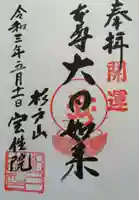 奉拝
開運
本尊 大日如来
杉戸山
宝性院
令和三年五月十一日